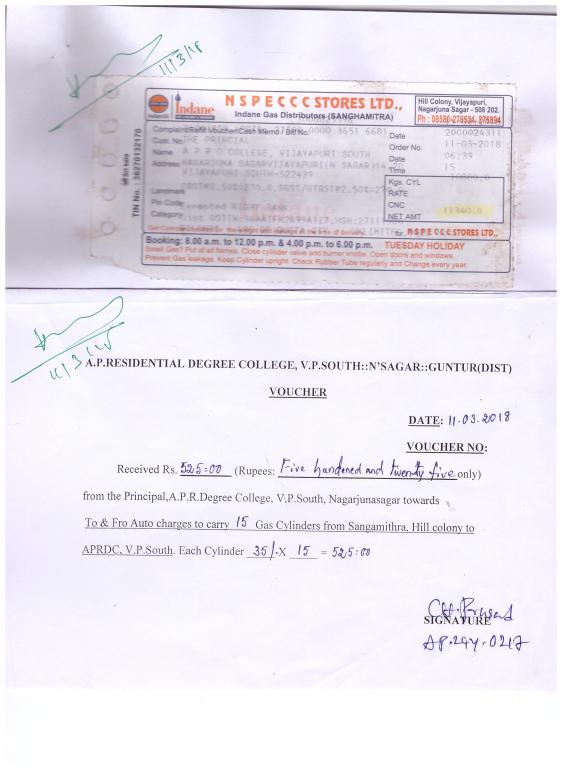 11/3/18
Indane
NSPECCC STORES LTD.,
Indane Gas Distributors (SANGHAMITRA)
Hill Colony, Vijayapuri,
Nagarjuna Sagar - 508 202.
Ph : 08580-276524, 276894
Complaint/Refill Voucher/Cash Memo / Bill No. 0000 3651 6681
Date 2000024311
Cust. No. THE PRINCIAL
Order No. 11-03-2018
Name A P R D COLLEGE, VIJAYAPURI SOUTH
Date 06:39
Address NAGARJUNA SAGARVIJAYAPURI(N SAGAR)
Time 15
VIJAYAPURI SOUTH-522439
Kgs. CYL
Landmark
RATE
Pin Code Exempted RIGHT BANK
CNC
Category
NET AMT 11340.0
TIN No. 36270132170
for NSPECCC STORES LTD.,
Booking: 8.00 a.m. to 12.00 p.m. & 4.00 p.m. to 6.00 p.m. TUESDAY HOLIDAY
Smell Gas? Put of all flames. Close cylinder valve and burner knobs. Open doors and windows.
Prevent Gas leakage. Keep Cylinder upright. Check Rubber Tube regularly and Change every year.
11/3/18
A.P.RESIDENTIAL DEGREE COLLEGE, V.P.SOUTH::N'SAGAR::GUNTUR(DIST)
VOUCHER
DATE: 11.03.2018
VOUCHER NO:
Received Rs. 525=00 (Rupees: Five hundened and twenty five only)
from the Principal,A.P.R.Degree College, V.P.South, Nagarjunasagar towards
To & Fro Auto charges to carry 15 Gas Cylinders from Sangamithra, Hill colony to
APRDC, V.P.South. Each Cylinder 35/-X 15 = 525:00
CH. Prasad
SIGNATURE